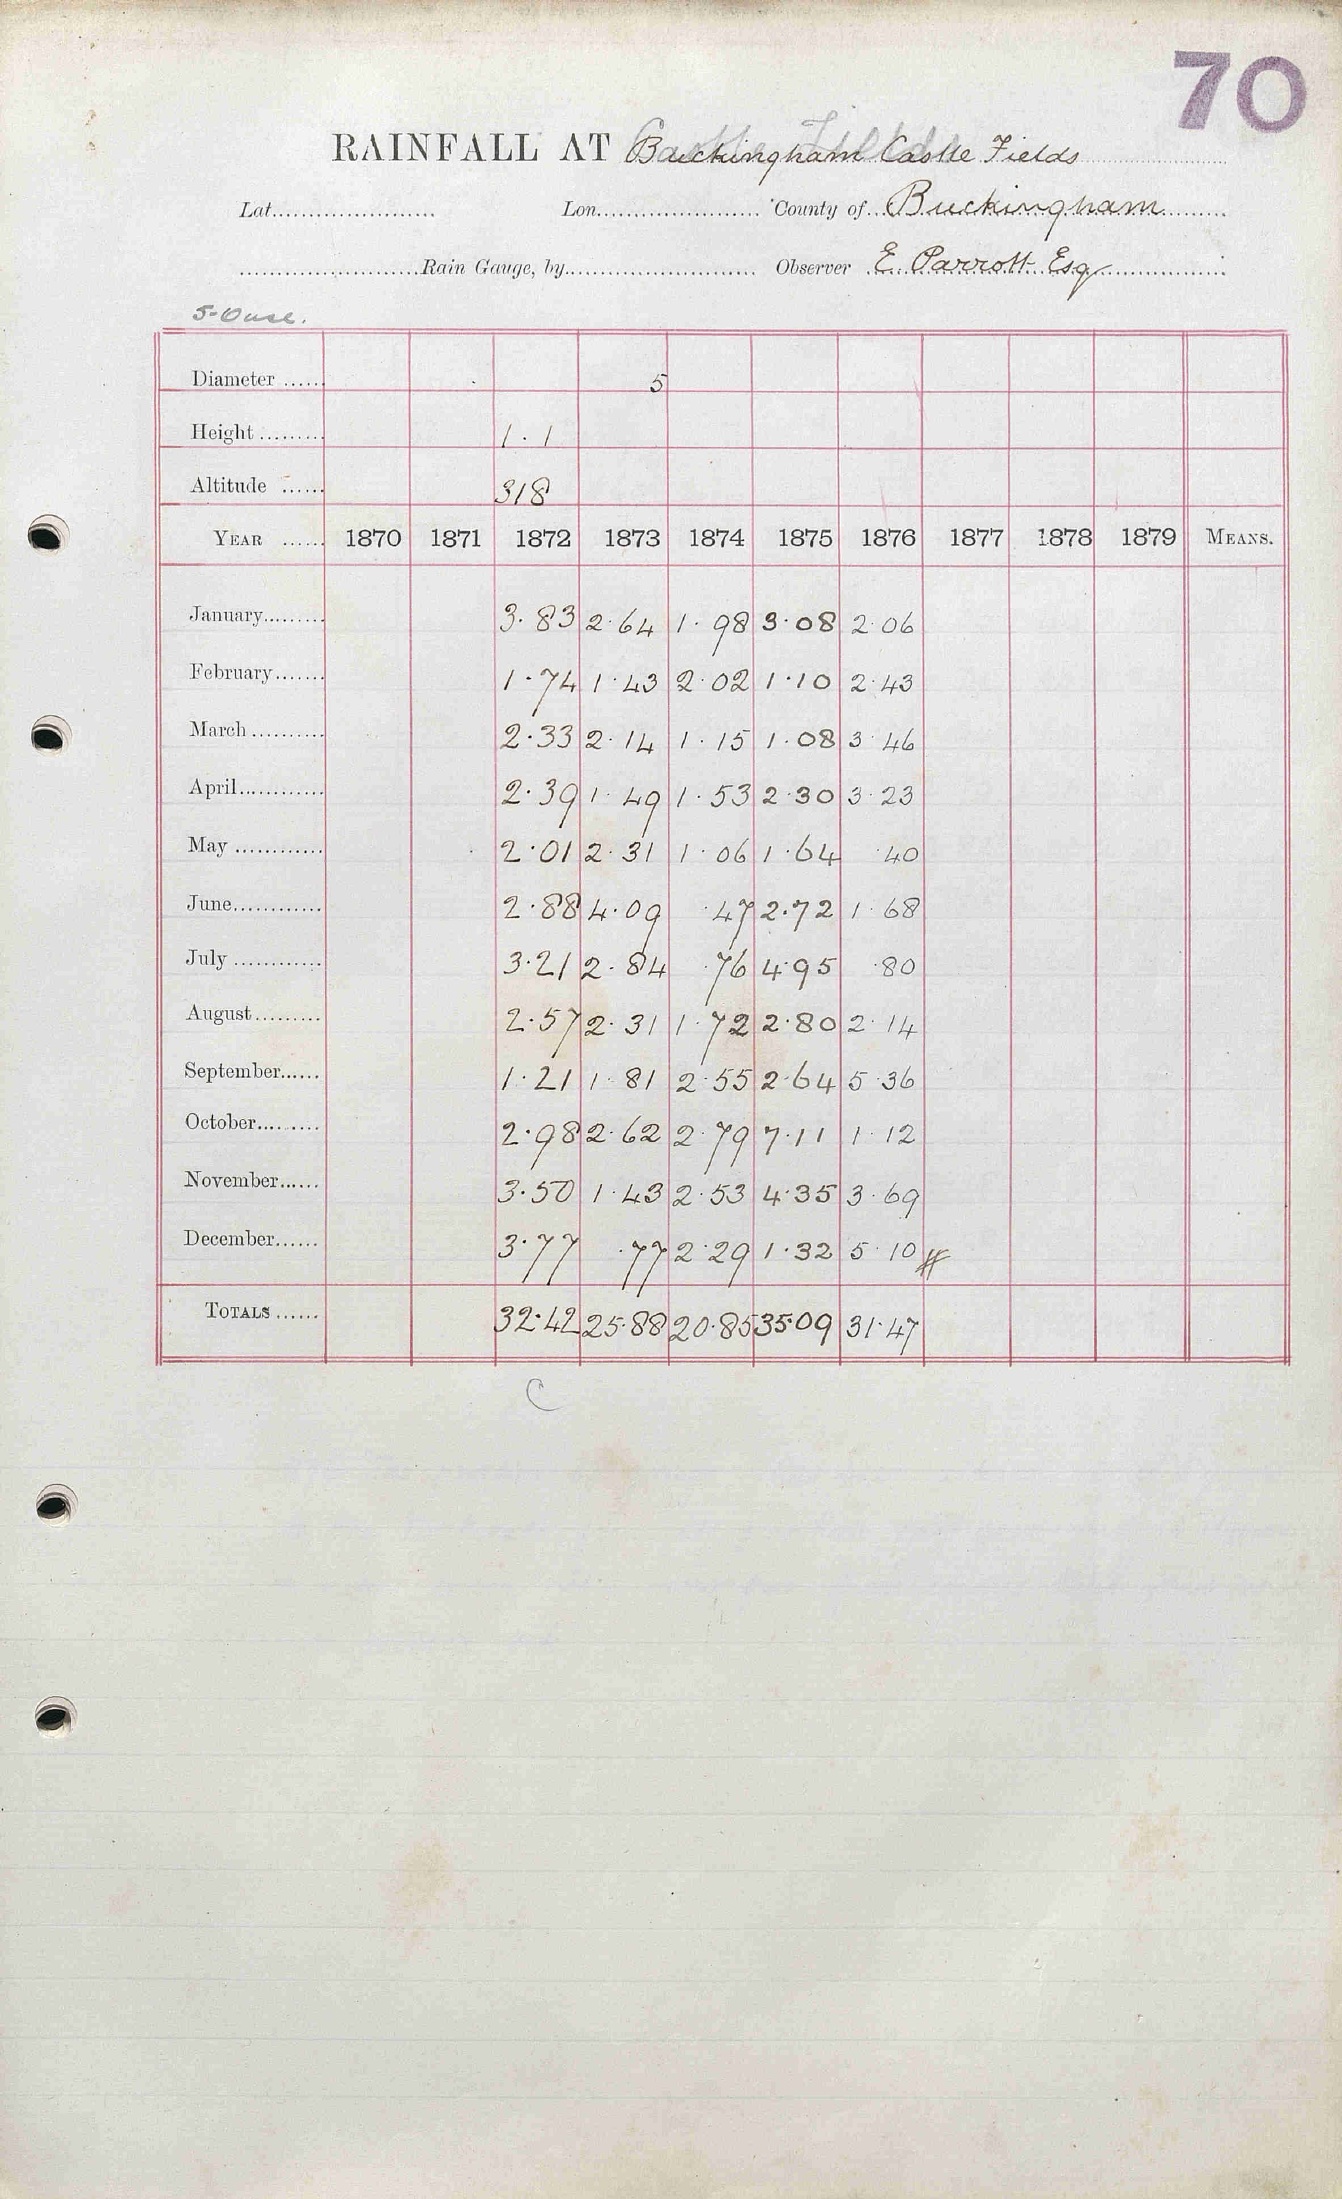 70
RAINFALL AT Buckingham Castle Fields
Lat. Lon. County of Buckingham
Rain Gauge, by Observer E. Parrott Esq
5-Ouse.
Diameter 5
Height 1.1
Altitude 318
YEAR 1870 1871 1872 1873 1874 1875 1876 1877 1878 1879 MEANS.
January 3.83 2.64 1.98 3.08 2.06
February 1.74 1.43 2.02 1.10 2.43
March 2.33 2.14 1.15 1.08 3.46
April 2.39 1.49 1.53 2.30 3.23
May 2.01 2.31 1.06 1.64 .40
June 2.88 4.09 .47 2.72 1.68
July 3.21 2.84 .76 4.95 .80
August 2.57 2.31 1.72 2.80 2.14
September 1.21 1.81 2.55 2.64 5.36
October 2.98 2.62 2.79 7.11 1.12
November 3.50 1.43 2.53 4.35 3.69
December 3.77 .77 2.29 1.32 5.10
TOTALS 32.42 25.88 20.85 35.09 31.47
C